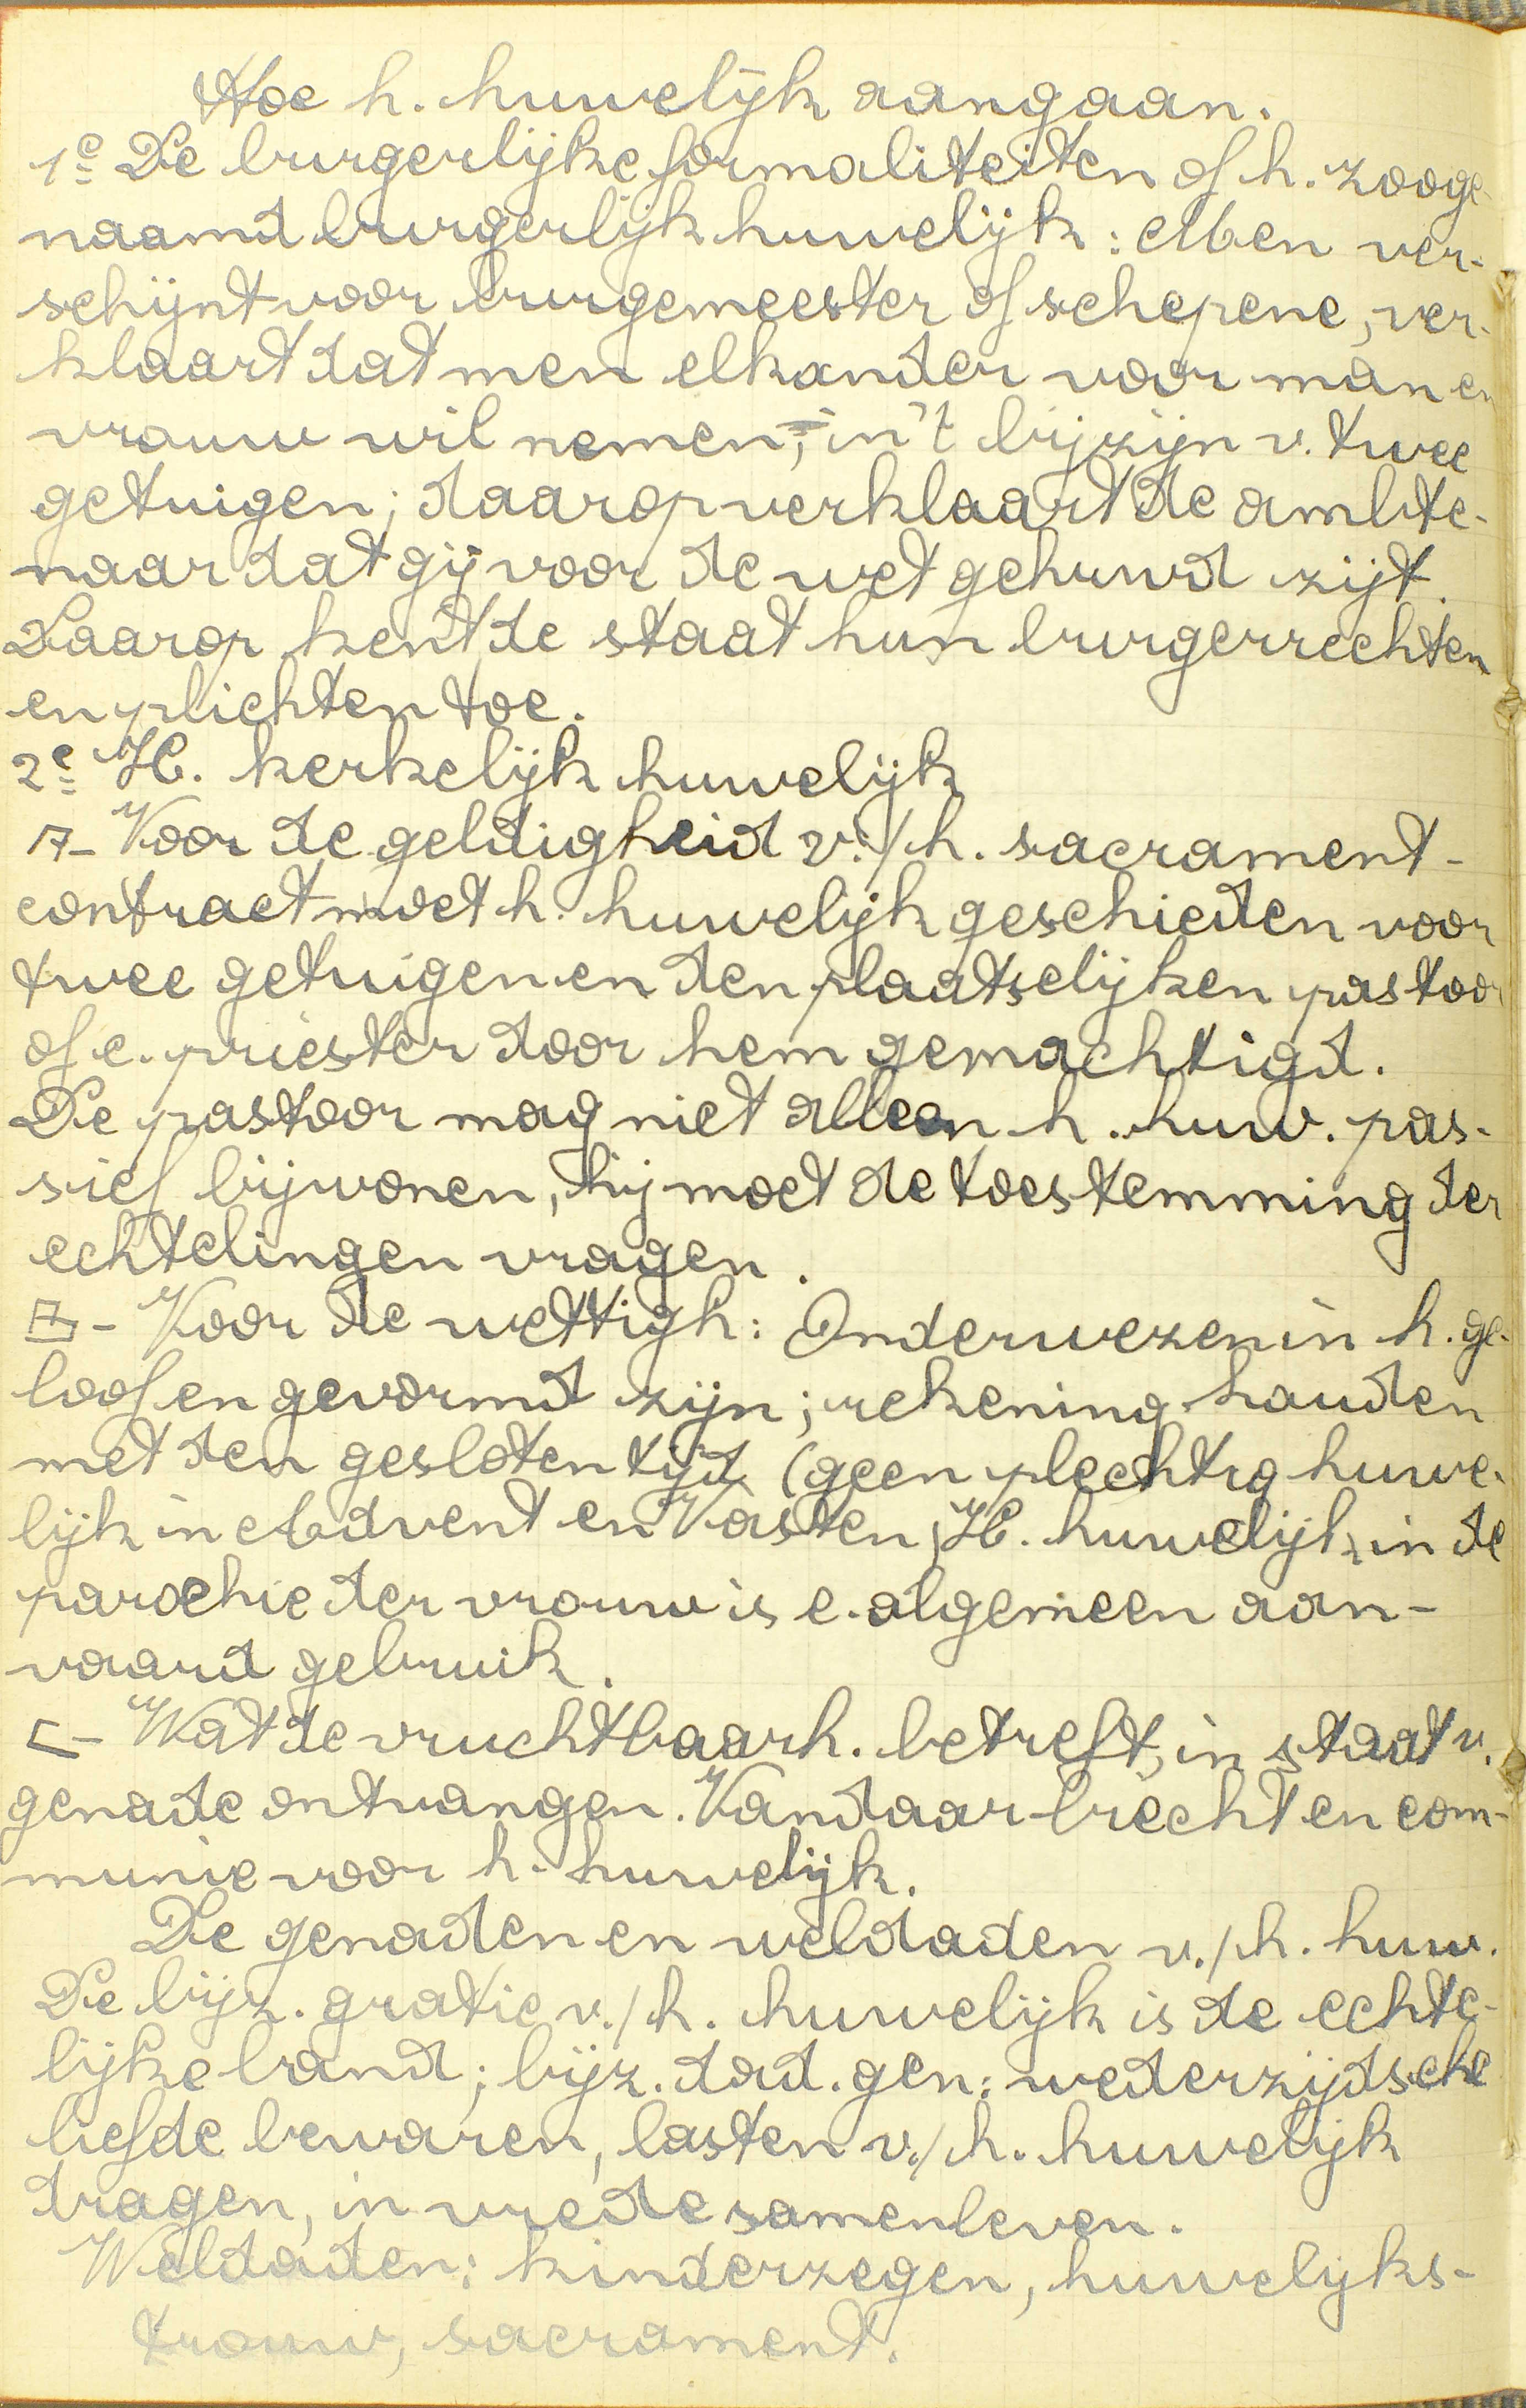 Hoe h. huwelijk aangaan.
1e De burgerlijke formaliteiten of h. zooge-
naamd burgerlijk huwelijk: Men ver-
schijnt voor burgemeester of schepene, ver-
klaart dat men elkander voor man en
vrouw wil nemen, in 't bijzijn v. twee
getuigen; daarop verklaart de ambte-
naar dat gij voor de wet gehuwd zijt.
Daarop kent de staat hun burgerrechten
en plichten toe.
2e H. kerkelijk huwelijk
A- Voor de geldigheid v./h. sacrament-
contract moet h. huwelijk geschieden voor
twee getuigen en den plaatselijken pastoor
of e. priester door hem gemachtigd.
De pastoor mag niet alleen h. huw. pas-
sief bijwonen, hij moet de toestemming der
echtelingen vragen.
B- Voor de wettigh: Onderwezen in h. ge-
loof en gevormd zijn; rekening houden
met den gesloten tijd (geen plechtig huwe-
lijk in Advent en Vasten, H. huwelijk in de
parochie der vrouw is e. algemeen aan-
vaard gebruik.
C- Wat de vruchtbaarh. betreft, in staat v.
genade ontvangen. Vandaar biecht en com-
munie voor h. huwelijk.
De genaden en weldaden v./h. huw.
De bijz. gratie v./h. huwelijk is de echte-
lijke band; bijz. dad. gen: wederzijdsche
liefde bewaren, lasten v./h. huwelijk
dragen, in vrede samenleven.
Weldaden: kinderzegen, huwelijks-
trouw, sacrament.